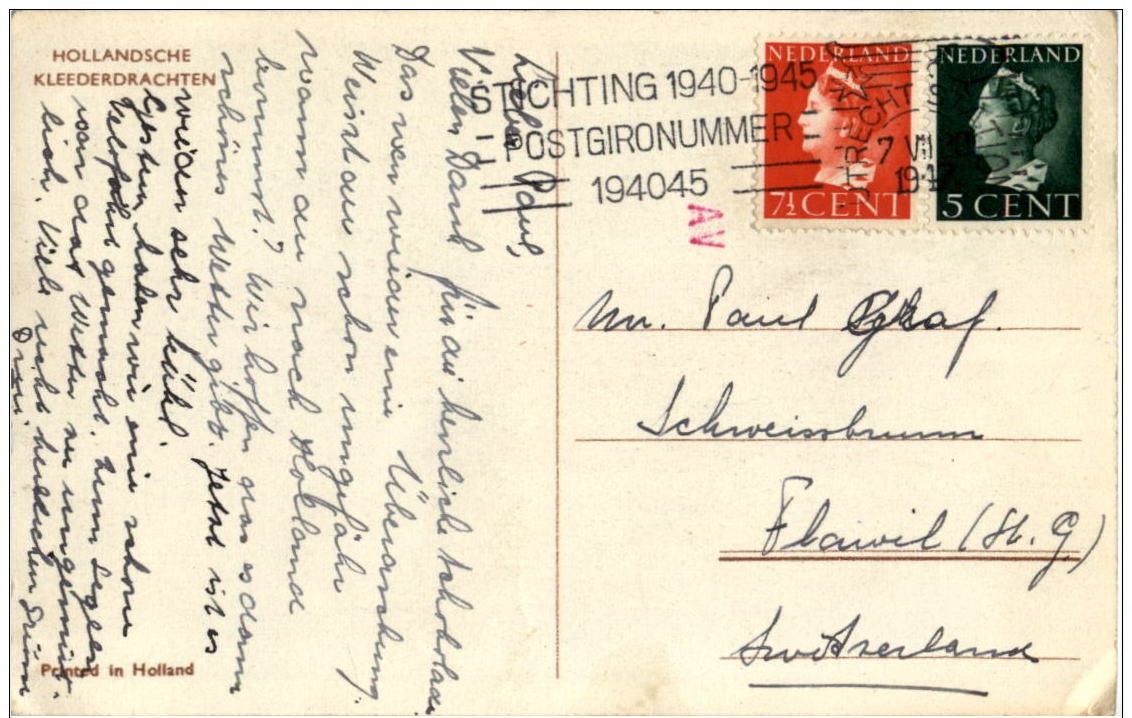 HOLLANDSCHE
KLEEDERDRACHTEN
Lieber Paul,
Vielen Dank für die herrliche Schokolade.
Das war wieder eine Überaschung.
Weist du schon ungefähr
wann du nach Holland
kommst? Wir hoffen das es dann
schönes Wetter gibt. Jetzt ist es
wieder sehr kühl.
Gestern haben wir eine schöne
gemacht. Zum Segeln
war das Wetter zu
lich. Viele recht herzlichen Grüsse
Printed in Holland
STICHTING 1940-1945
POSTGIRONUMMER
194045
UTRECHT
7 VII
1947
NEDERLAND
7½ CENT
NEDERLAND
5 CENT
AV
Mr. Paul Graf.
Schweissbrunn
Flawil (St. G)
Switzerland